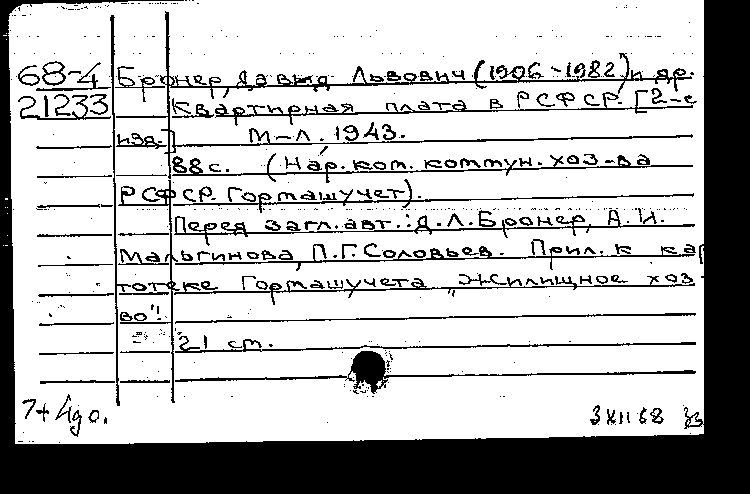 68-4
21233
Бронер, Давыд Львович (1906-1982) и др.
Квартирная плата в РСФСР. [2-е
изд.] М-Л. 1943.
88 с. (Нар. ком. коммун. хоз-ва
РСФСР. Гормашучет).
Перед загл. авт.: Д.Л. Бронер, А.И.
Мальгинова, П.Г. Соловьев. Прил. к кар
тотеке Гормашучета „Жилищное хоз-
во".
21 см.
7+
3 XII 68